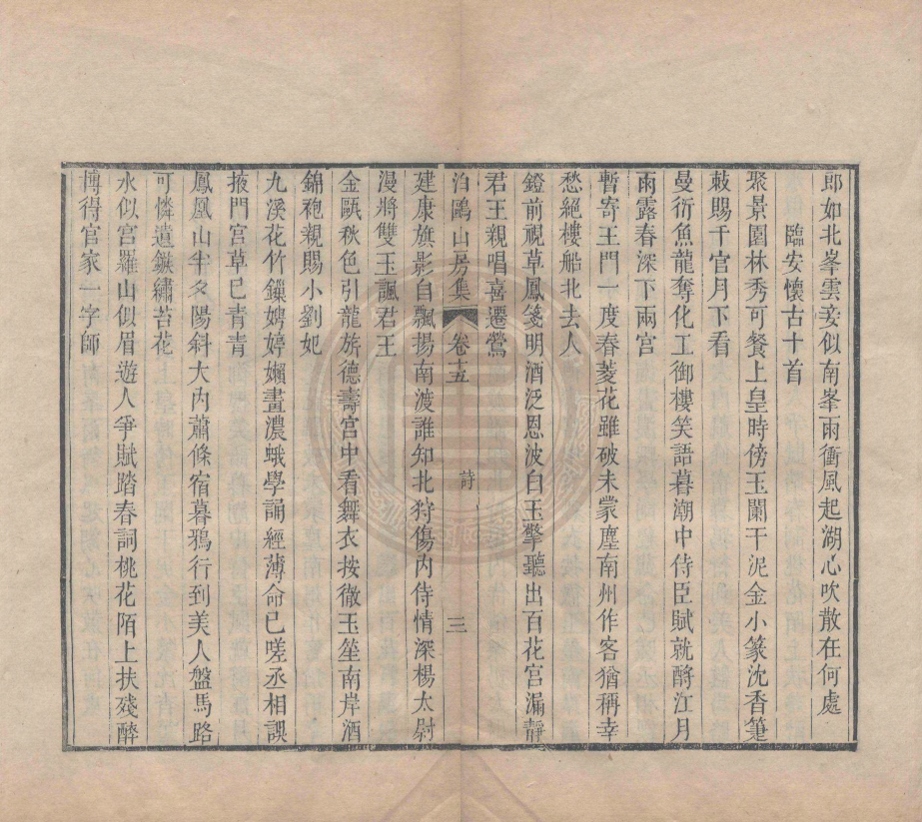 郎如北峯雲妾似南峯雨衝風起湖心吹散在何處
臨安懷古十首
聚景園林秀可餐上皇時傍玉闌干泥金小篆沈香筆
敕賜千官月下看
曼衍魚龍奪化工御樓笑語暮潮中侍臣賦就酹江月
雨露春深下兩宮
暫寄王門一度春菱花雖破未蒙塵南州作客猶稱幸
愁絕樓船北去人
鐙前視草鳳箋明酒泛恩波白玉擎聽出百花宮漏靜
君王親唱喜遷鶯
泊鷗山房集 卷十五 詩 三
建康旗影自飄揚南渡誰知北狩傷內侍情深楊太尉
漫將雙玉諷君王
金甌秋色引龍旂德壽宮中看舞衣按徹玉笙南岸酒
錦袍親賜小劉妃
九溪花竹鏁娉婷嬾畫濃蛾學誦經薄命已嗟丞相誤
掖門宮草已青青
鳳凰山半夕陽斜大內蕭條宿暮鴉行到美人盤馬路
可憐遺鏃繡苔花
水似宮羅山似眉遊人爭賦踏春詞桃花陌上扶殘醉
博得官家一字師